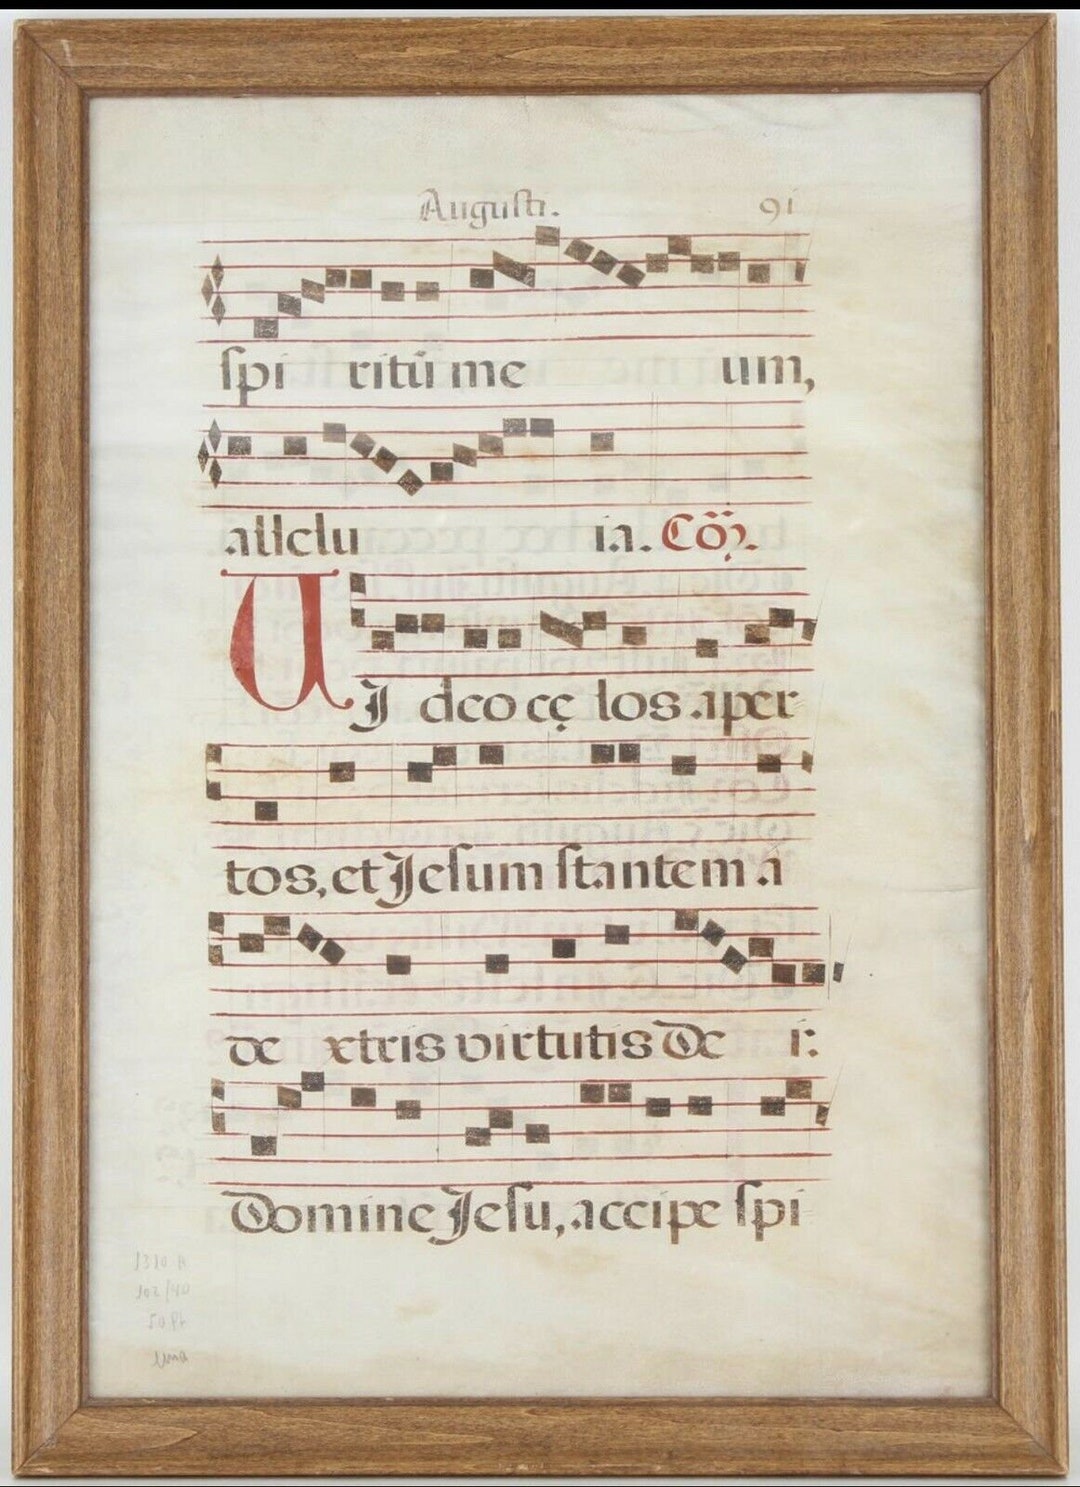 Augusti. 91
spi ritū me um,
allelu ia. Cō̃.
VI deo cę los aper
tos, et Jesum stantem á
de xtris virtutis De i:
Domine Jesu, accipe spi